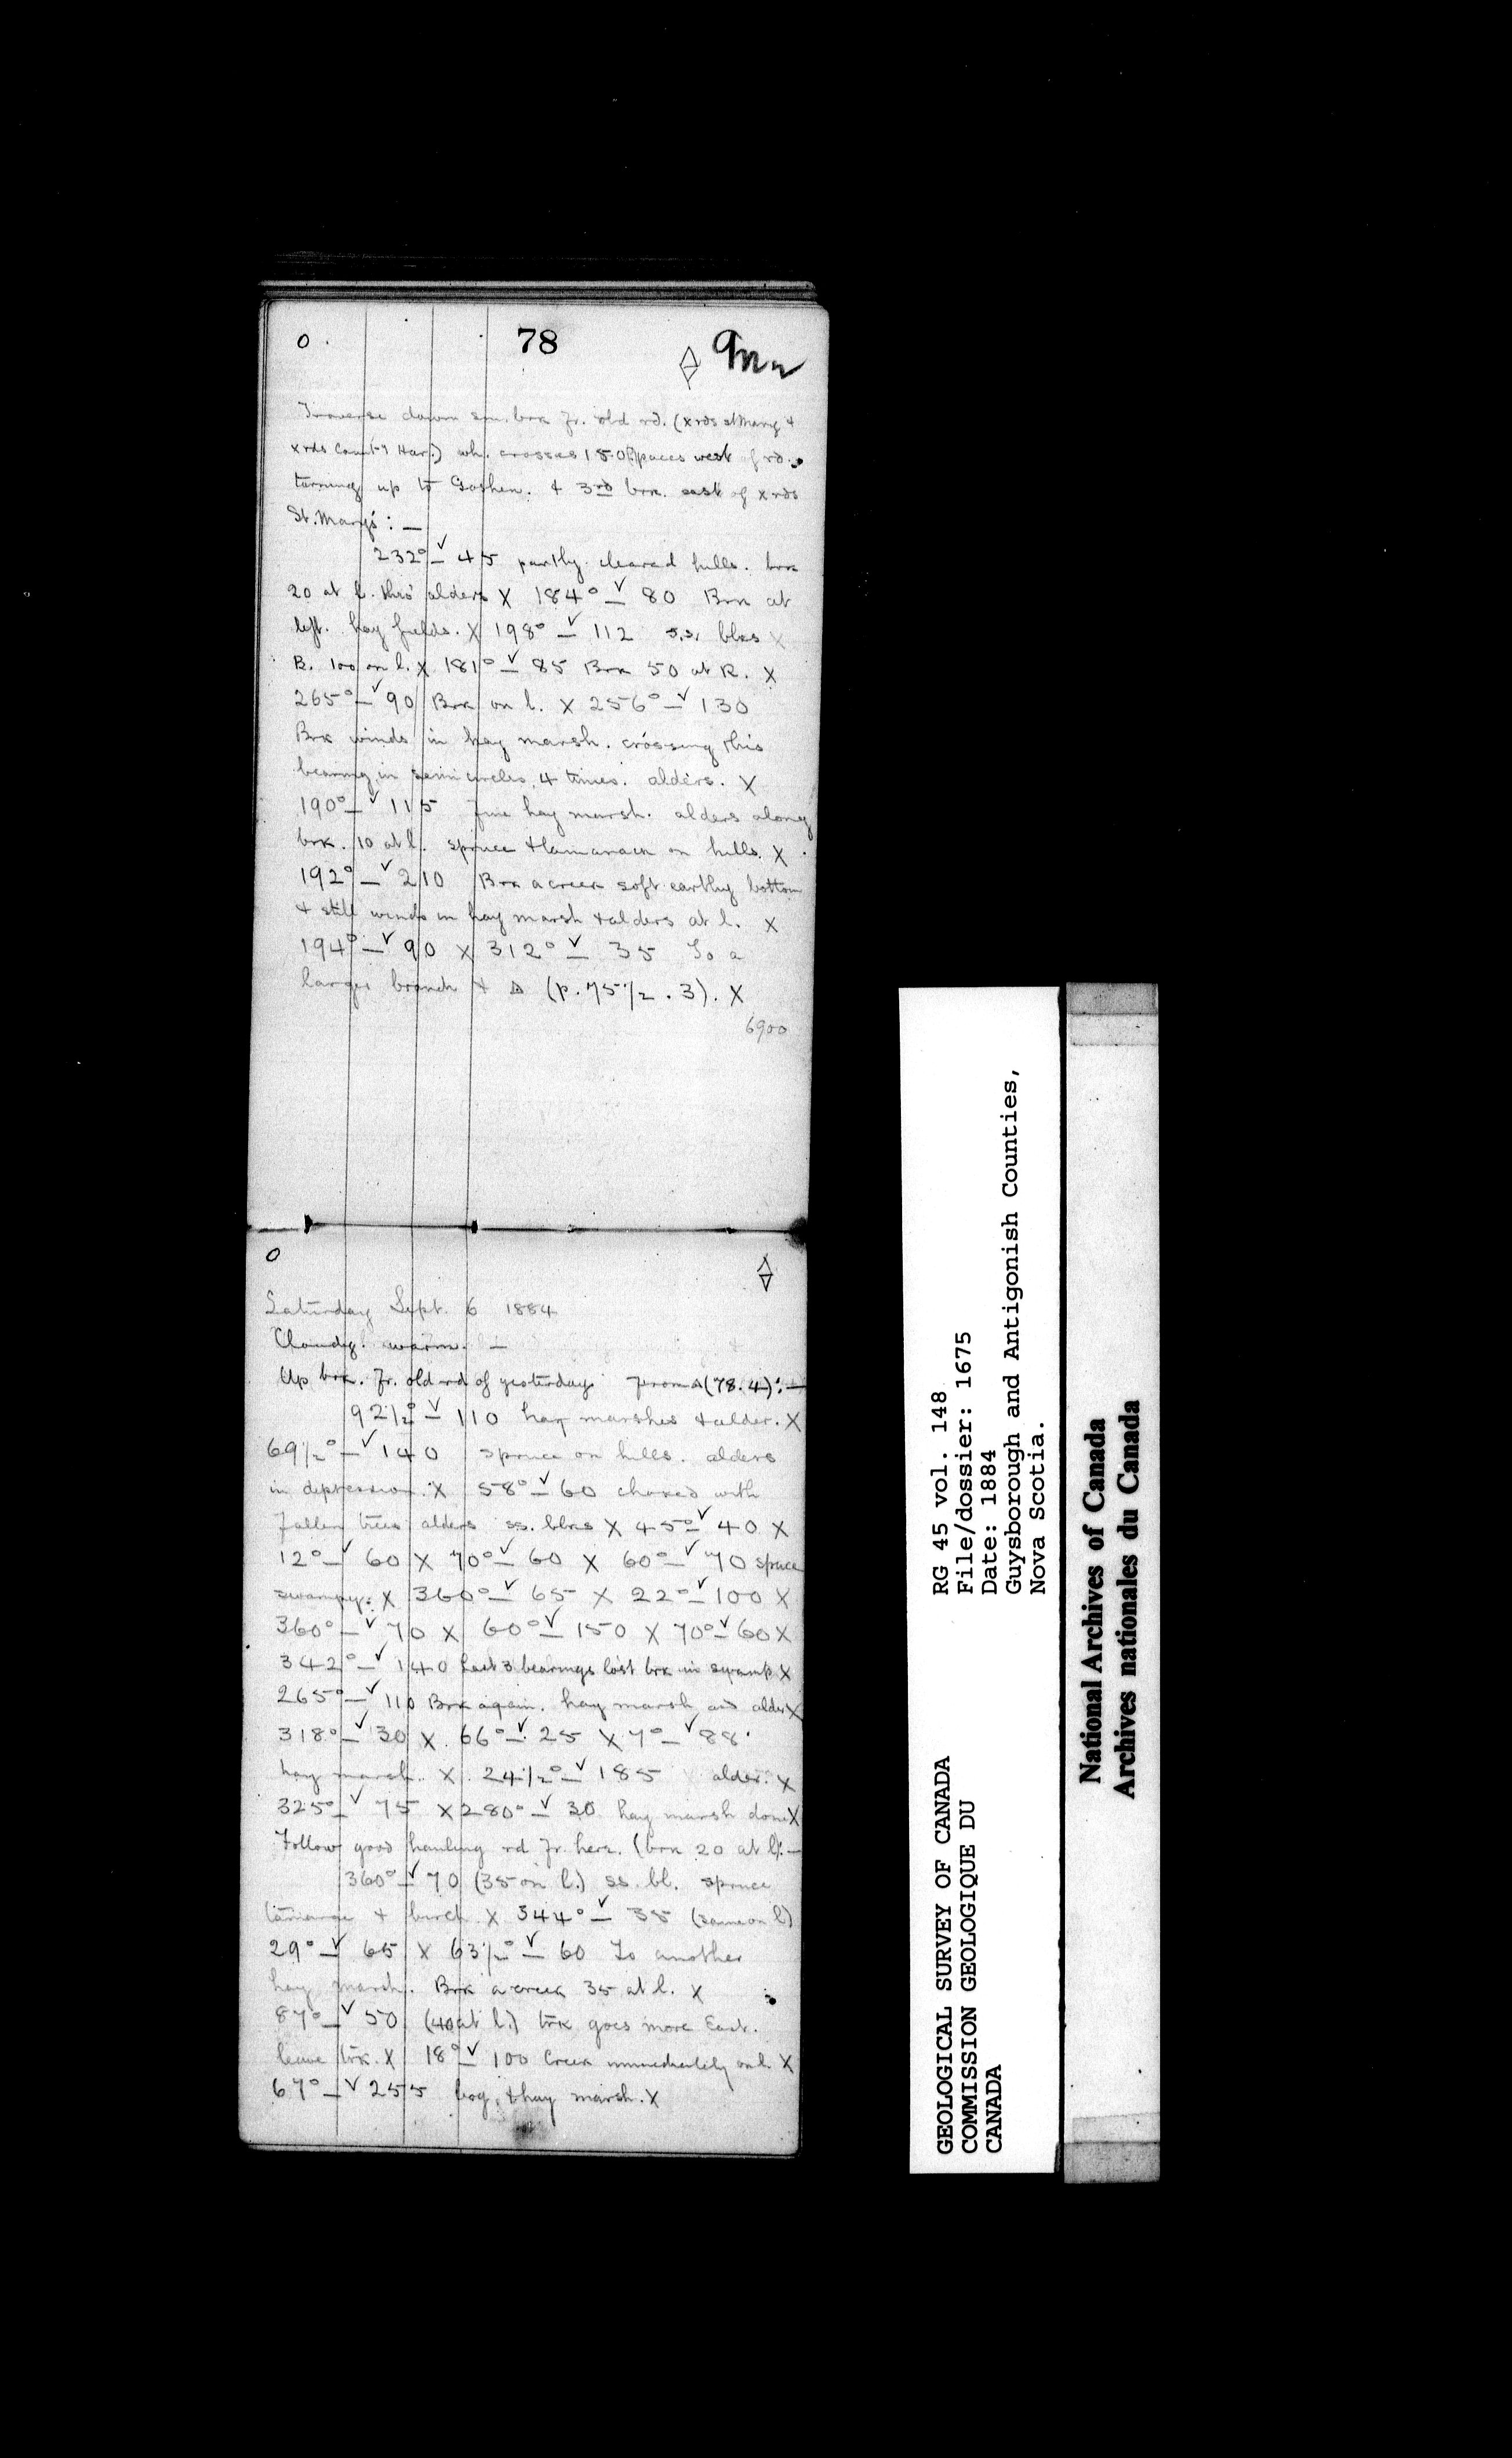 78
Traverse down sm. brk fr. old rd. (x rds St Mary &
x rds Count'y Har.) wh. crosses 150 paces west of rd.
turning up to Goshen. & 3rd brk. east of x rds
St. Mary's : —
232° — ✓ 45 partly cleared hills. brk
20 at l. thro' alders X 184° — ✓ 80 Brk at
left. hay fields. X 198° — ✓ 112 s.s. blks X
B. 100 on l. X 181° — ✓ 85 Brk 50 at R. X
265° — ✓ 90 Brk on l. X 256° — ✓ 130
Brk winds in hay marsh. crossing this
bearing in semi circles 4 times. alders. X
190° — ✓ 115 fine hay marsh. alders along
brk. 10 at l. spruce & tamarack on hills. X
192° — ✓ 210 Brk a creek soft earthy bottom
& still winds in hay marsh & alders at l. X
194° — ✓ 90 X 312° — ✓ 35 To a
larger branch & Δ (p. 75 1/2 . 3). X
6900
Saturday Sept. 6 1884
Cloudy. warm. —
Up brk. fr. old rd of yesterday from Δ (78.4) : —
92 1/2° — ✓ 110 hay marshes & alder. X
69 1/2° — ✓ 140 spruce on hills. alders
in depression. X 58° — ✓ 60 choked with
fallen trees alders ss. blks X 45° — ✓ 40 X
12° — ✓ 60 X 70° — ✓ 60 X 60° — ✓ 70 spruce
swampy. X 360° — ✓ 65 X 22° — ✓ 100 X
360° — ✓ 70 X 60° — ✓ 150 X 70° — ✓ 60 X
342° — ✓ 140 Last 3 bearings lost brk in swamp X
265° — ✓ 110 Brk again. hay marsh and alder X
318° — ✓ 30 X 66° — ✓ 25 X 7° — ✓ 88
hay marsh. X 24 1/2° — ✓ 185 alder. X
325° — ✓ 75 X 280° — ✓ 30 hay marsh done X
Follow good hauling rd fr. here. (brk 20 at l). —
360° — ✓ 70 (35 on l.) ss. bl. spruce
& birch X 344° — ✓ 35 (same on l)
29° — ✓ 65 X 63 1/2° — ✓ 60 To another
hay marsh. Brk a creek 35 at l. X
87° — ✓ 50 (40 at l.) brk goes more East.
leave brk. X 18° — ✓ 100 Creek immediately on l. X
67° — ✓ 255 bog & hay marsh. X
RG 45 vol. 148
File/dossier: 1675
Date: 1884
Guysborough and Antigonish Counties,
Nova Scotia.
GEOLOGICAL SURVEY OF CANADA
COMMISSION GEOLOGIQUE DU
CANADA
National Archives of Canada
Archives nationales du Canada